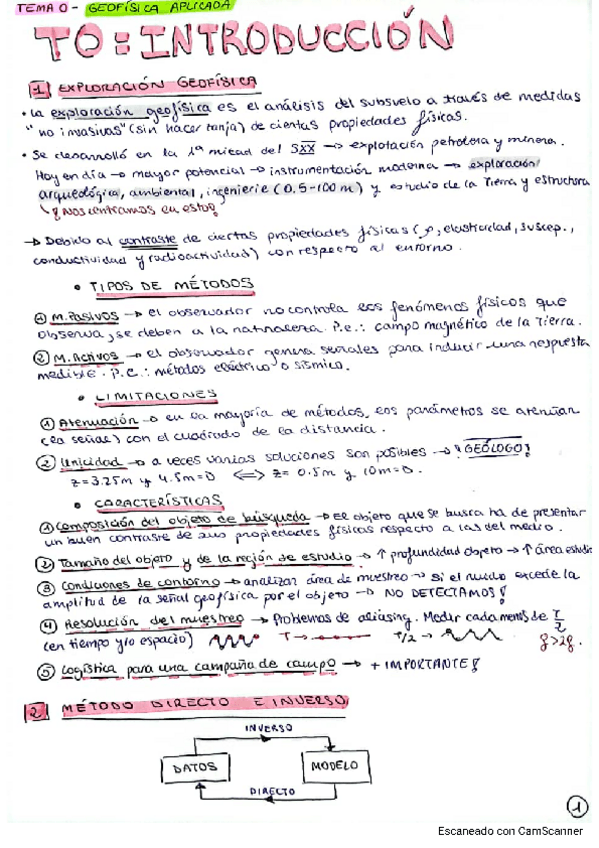 TEMA 0 - GEOFÍSICA APLICADA
T0: INTRODUCCIÓN
1 EXPLORACIÓN GEOFÍSICA
• La exploración geofísica es el análisis del subsuelo a través de medidas
"no invasivas" (sin hacer zanja) de ciertas propiedades físicas.
• Se desarrolló en la 1ª mitad del SXX → explotación petrolera y minera.
Hoy en día → mayor potencial → instrumentación moderna → exploración
arqueológica, ambiental, ingeniería (0.5-100m) y estudio de la Tierra y estructura
¡Nos centramos en esto!
→ Debido al contraste de ciertas propiedades físicas (ρ, elasticidad, suscep.,
conductividad y radioactividad) con respecto al entorno.
• TIPOS DE MÉTODOS
① M. Pasivos → el observador no controla los fenómenos físicos que
observa, se deben a la naturaleza. P.e.: campo magnético de la Tierra.
② M. Activos → el observador genera señales para inducir una respuesta
medible. P.e.: métodos eléctrico o sísmico.
• LIMITACIONES
① Atenuación → en la mayoría de métodos, los parámetros se atenúan
(la señal) con el cuadrado de la distancia.
② Unicidad → a veces varias soluciones son posibles → ¡GEÓLOGO!
z=3.25m y 4.5m=D ⟺ z= 0.5m y 10m=D.
• CARACTERÍSTICAS
① Composición del objeto de búsqueda → El objeto que se busca ha de presentar
un buen contraste de sus propiedades físicas respecto a las del medio.
② Tamaño del objeto y de la región de estudio → ↑ profundidad objeto → ↑ área estudio
③ Condiciones de contorno → analizar área de muestreo → si el ruido excede la
amplitud de la señal geofísica por el objeto → NO DETECTAMOS!
④ Resolución del muestreo → Problemas de aliasing. Medir cada menos de T/2
(en tiempo y/o espacio) T → T/2 →
⑤ Logística para una campaña de campo → + IMPORTANTE!
2 MÉTODO DIRECTO E INVERSO
INVERSO
DATOS MODELO
DIRECTO
1
Escaneado con CamScanner